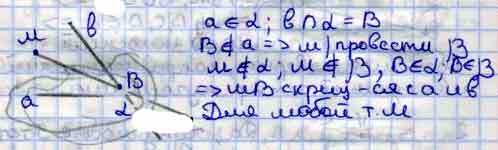 в
м
а
В
α
a ∈ α; в ∩ α = B
B ∉ a => м/провести β
M ∉ α; M ∉ β, B ∈ α, B ∈ β
=> мB скрещ-ся с а и в
Для любой т. М